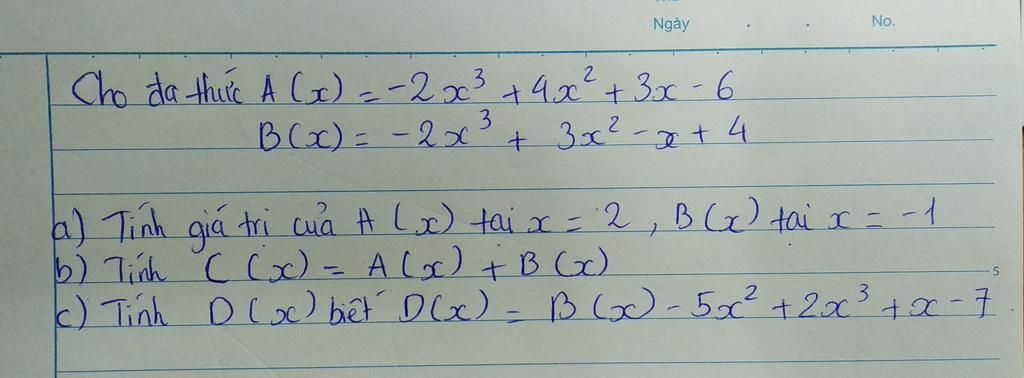 Ngày . . No.
Cho đa thức A(x) = -2x³ + 4x² + 3x - 6
B(x) = -2x³ + 3x² - x + 4
a) Tính giá tri của A(x) tai x = 2, B(x) tai x = -1
b) Tính C(x) = A(x) + B(x)
5
c) Tính D(x) biết D(x) = B(x) - 5x² + 2x³ + x - 7